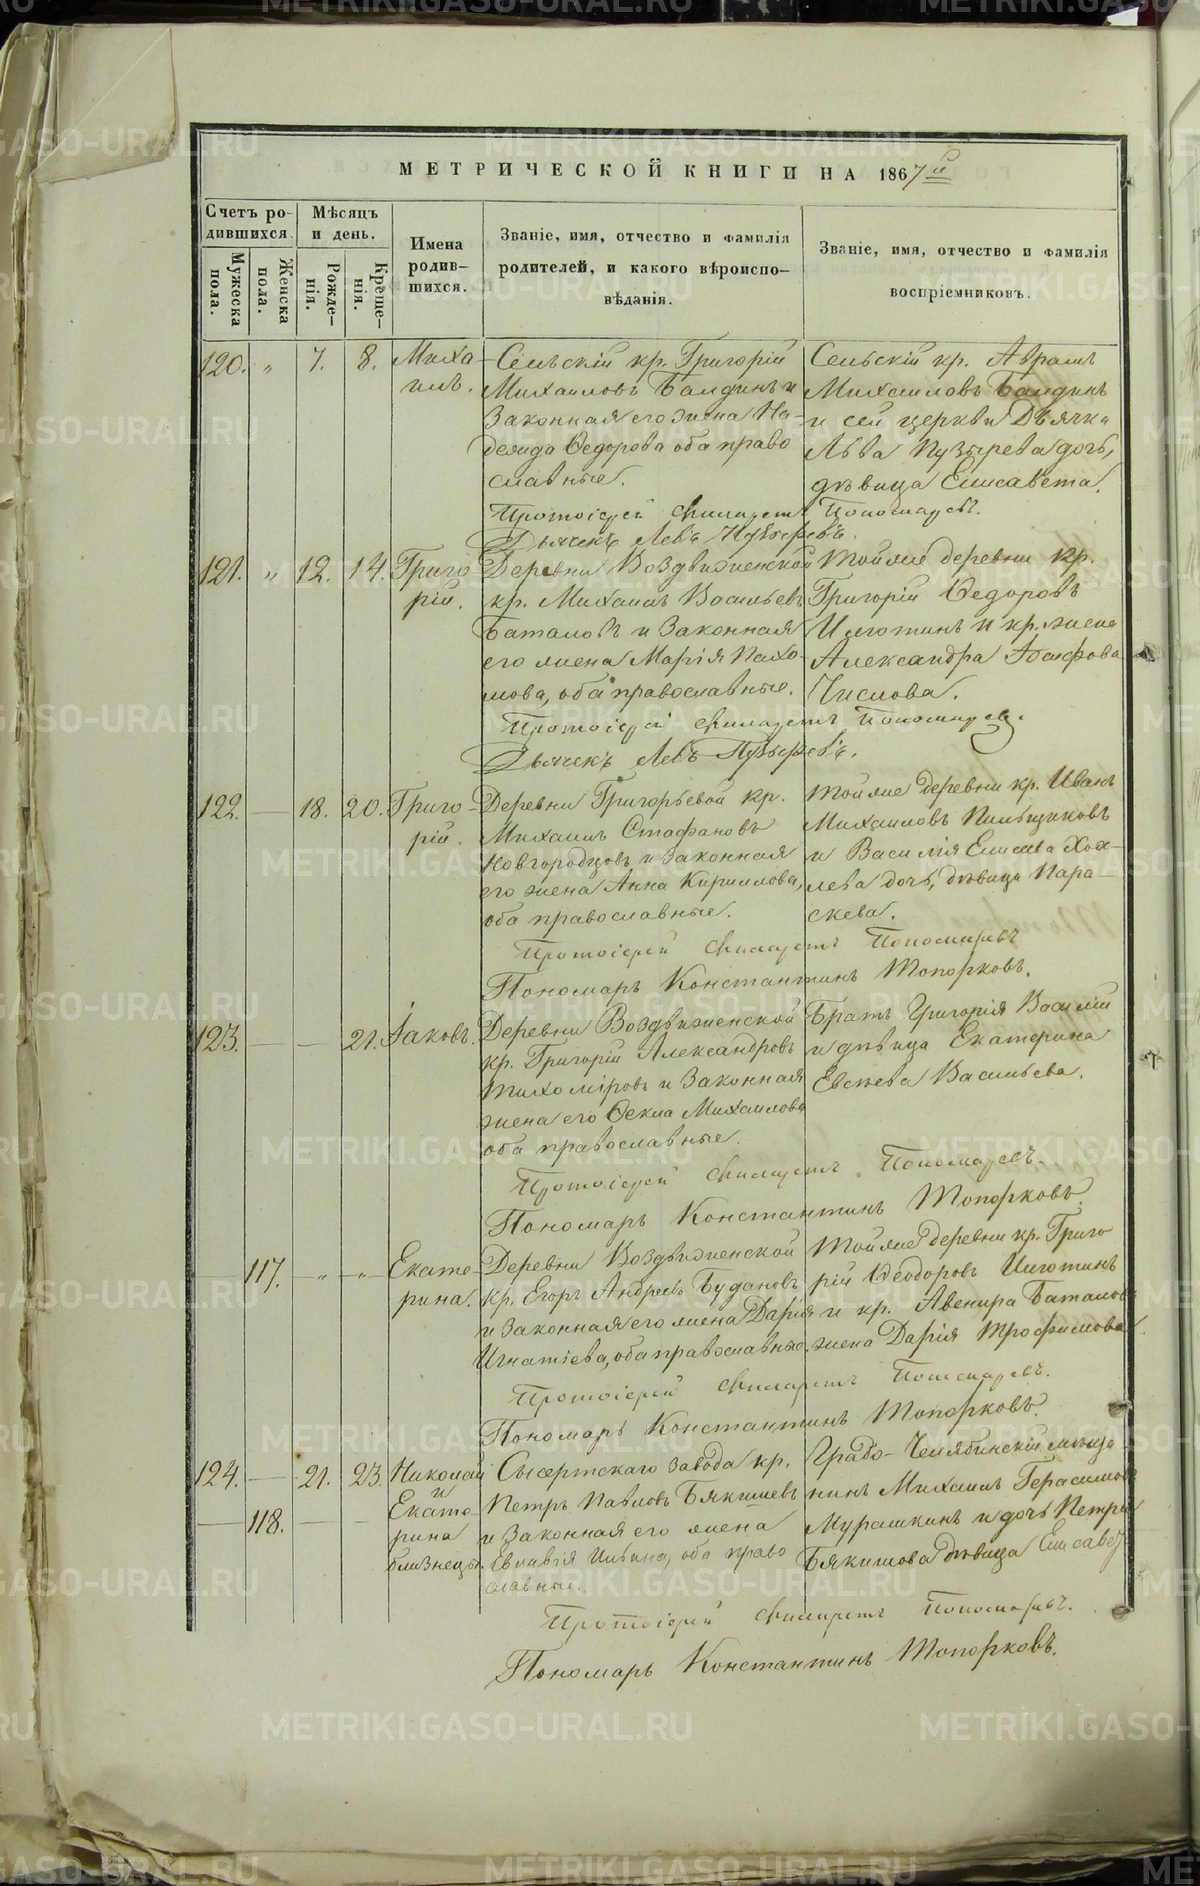 МЕТРИЧЕСКОЙ КНИГИ НА 1867й
Счетъ ро-
дившихся.
Мужеска
пола.
Женска
пола.
Мѣсяцъ
и день.
Рожде-
нія.
Креще-
нія.
Имена
родив-
шихся.
Званіе, имя, отчество и фамилія
родителей, и какого вѣроиспо-
вѣданія.
Званіе, имя, отчество и фамилія
воспріемниковъ.
120. „ 7. 8. Миха
илъ.
Сельскій кр. Григорій
Михаиловъ Балдинъ и
Законная его жена На-
дежда Ѳедорова оба право
славные.
Сельскій кр. Абрамъ
Михаиловъ Балдинъ
и сей церкви Дьячка
Льва Пузырева дочь,
дѣвица Елисавета.
Протоіерей Филаретъ Пономаревъ.
Дьячекъ Левъ Пузыревъ.
121. „ 12. 14. Григо
рій.
Деревни Воздвиженской
кр. Михаилъ Васильевъ
Баталовъ и Законная
его жена Марія Пахо-
мова, оба православные.
Тойже деревни кр.
Григорій Ѳедоровъ
и кр. жена
Александра
Числова.
Протоіерей Филаретъ Пономаревъ.
Дьячекъ Левъ Пузыревъ.
122. — 18. 20. Григо-
рій.
Деревни Григорьевой кр.
Михаилъ Стефановъ
Новгородцовъ и Законная
его жена Анна Кириллова,
оба православные.
Тойже деревни кр. Иванъ
Михаиловъ Пильщиковъ
и Василія Елисева Хох-
лева дочь, дѣвица Пара-
скева.
Протоіерей Филаретъ Пономаревъ
Пономарь Константинъ Топорковъ.
123. — — 21. Іаковъ.
Деревни Воздвиженской
кр. Григорій Александровъ
Тихоміровъ и Законная
жена его Ѳекла Михаилова
оба православные.
Братъ Григорія Василій
и дѣвица Екатерина
Евсѣева Васильева.
Протоіерей Филаретъ Пономаревъ.
Пономарь Константинъ Топорковъ.
— 117. -„- -„- Екате-
рина.
Деревни Воздвиженской
кр. Егоръ Андреевъ Будановъ
и Законная его жена Дарія
Игнатіева, оба православные,
Тойже деревни кр. Григо
рій Ѳеодоровъ
и кр. Авенира Баталова
жена Дарія Трофимова.
Протоіерей Филаретъ Пономаревъ.
Пономарь Константинъ Топорковъ.
124. — 21. 23. Николай
и
— 118. — — Екате-
рина
близнецы.
Сысертскаго завода кр.
Петръ Павловъ Бякишевъ
и Законная его жена
Евлавія Ильина, оба право
славные.
Градо-Челябинскій мѣща-
нинъ Михаилъ Герасимовъ
Мурашкинъ и дочь Петра
Бякишова дѣвица Елисавет
Протоіерей Филаретъ Пономаревъ.
Пономарь Константинъ Топорковъ.
METRIKI.GASO-URAL.RU